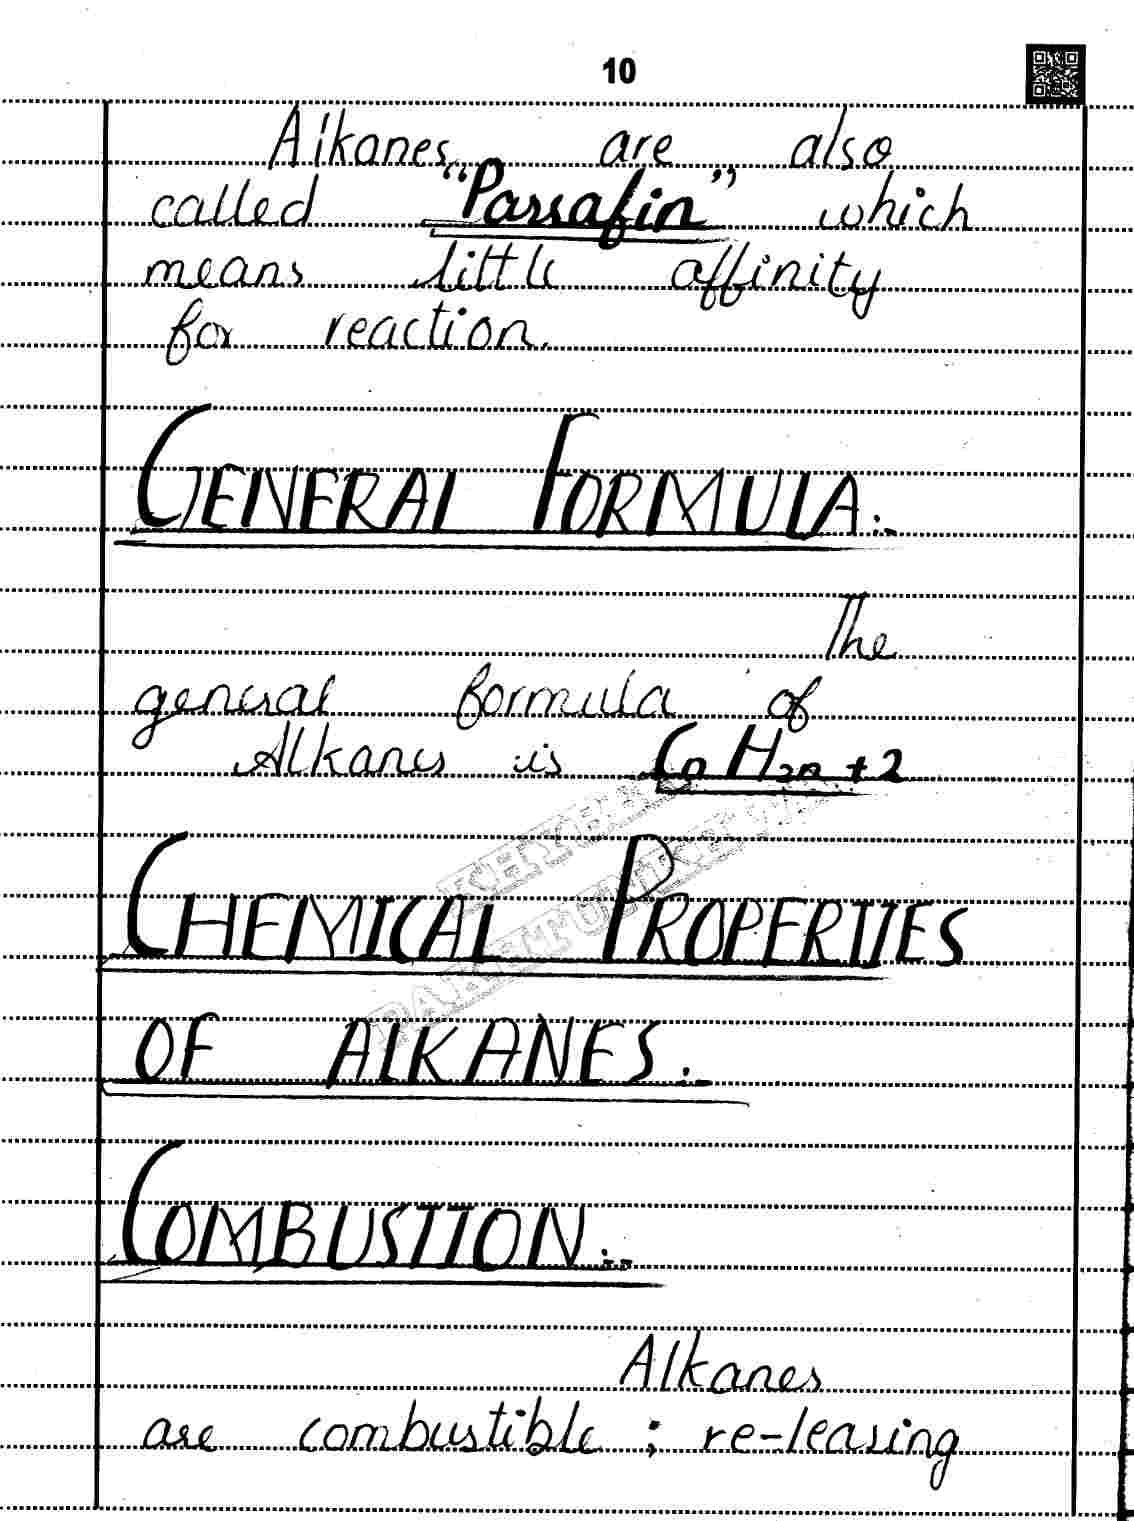 10
Alkanes are also
called "Parrafin" which
means little affinity
for reaction.
GENERAL FORMULA:-
The
general formula of
Alkanes is CnH2n+2
KHYBER
PAKHTUNKHWA
CHEMICAL PROPERTIES
OF ALKANES:-
COMBUSTION:-
Alkanes
are combustible ; re-leasing